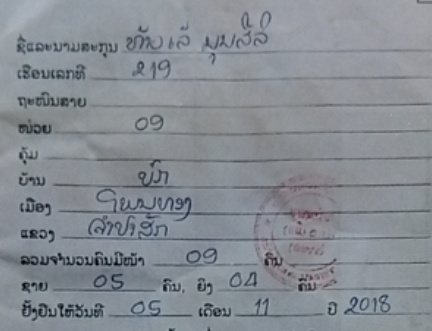 ຊື່ແລະນາມສະກຸນ ທ້າວ ເລື ບຸນສີລິ
ເຮືອນເລກທີ 219
ຖະໜົນສາຍ
ໜ່ວຍ 09
ຄຸ້ມ
ບ້ານ
ເມືອງ ໂພນທອງ
ແຂວງ ຈຳປາສັກ
ລວມຈຳນວນຄົນມີໜ້າ 09 ຄົນ
ຊາຍ 05 ຄົນ, ຍິງ 04 ຄົນ
ຢັ້ງຢືນໃຫ້ວັນທີ 05 ເດືອນ 11 ປີ 2018